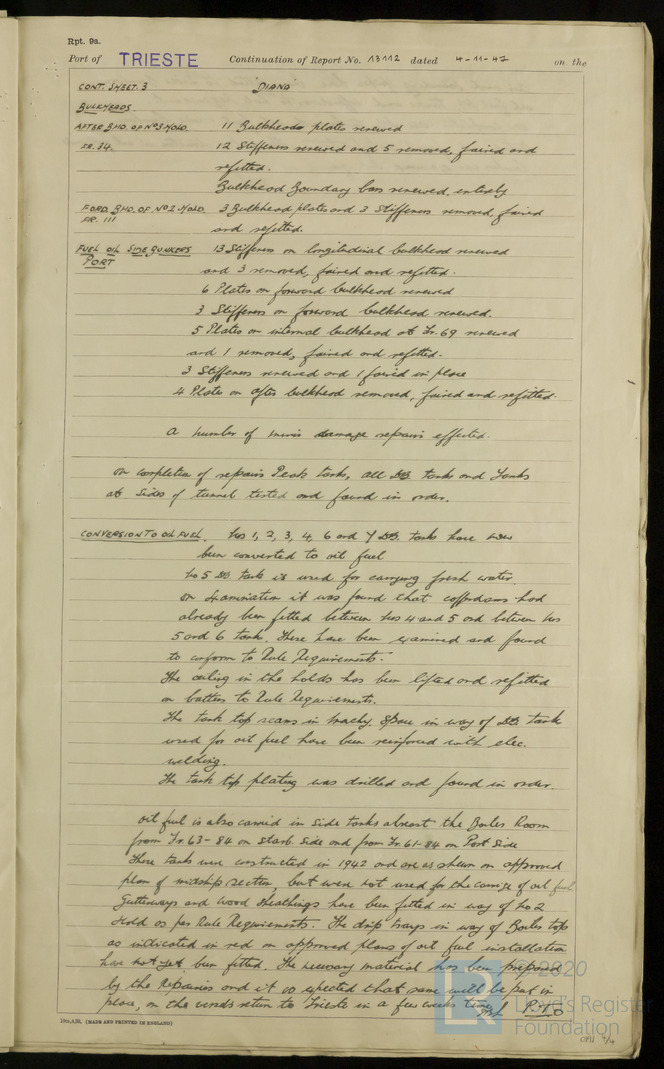 Rpt. 9a.
Port of TRIESTE Continuation of Report No. 13112 dated 4-11-47 on the
CONT. SHEET. 3 "DIANA"
BULKHEADS
AFTER BHD. OF No3 HOLD. 11 Bulkheads plates renewed
FR. 34. 12 Stiffeners renewed and 5 removed, faired and
refitted.
Bulkhead Boundary bars renewed entirely
FORD. BHD. OF No2 HOLD. 3 Bulkhead plates and 3 Stiffeners removed, faired
FR. 111 and refitted.
FUEL OIL SIDE BUNKERS 13 Stiffeners on longitudinal bulkhead renewed
PORT and 3 removed, faired and refitted.
6 Plates on forward bulkhead renewed
3 Stiffeners on forward bulkhead renewed.
5 Plates on internal bulkhead at Fr. 69 renewed
and 1 removed, faired and refitted.
3 Stiffeners renewed and 1 faired in place
4 Plates on after bulkhead removed, faired and refitted.
A number of minor damage repairs effected.
On completion of repairs Peak tanks, all DB tanks and Tanks
at sides of tunnel tested and found in order.
CONVERSION TO OIL FUEL. Nos 1, 2, 3, 4, 6 and 7 DB. tanks have now
been converted to oil fuel
No 5 DB tank is used for carrying fresh water.
On examination it was found that cofferdams had
already been fitted between Nos 4 and 5 and between Nos
5 and 6 tank. These have been examined and found
to conform to Rule Requirements.
The ceiling in the holds has been lifted and refitted
on battens to Rule Requirements.
The tank top seams in machy. Space in way of DB tank
used for oil fuel have been reinforced with elec.
welding.
The tank top plating was drilled and found in order.
Oil fuel is also carried in side tanks abreast the Boiler Room
from Fr. 63-84 on starb. side and from Fr. 61-84 on Port side
These tanks were constructed in 1942 and are as shewn on approved
plan of midship section, but were not used for the carriage of oil fuel
Gutterways and wood sheathings have been fitted in way of No 2
Hold as per Rule Requirements. The drip trays in way of Boiler top
as indicated in red on approved plans of oil fuel installation
have not yet been fitted. The necessary material has been prepared
by the Repairers and it is expected that same will be put in
place, on the vessels return to Trieste in a few weeks time. P.T.O
(MADE AND PRINTED IN ENGLAND)
© 2020
LR
Lloyd's Register
Foundation